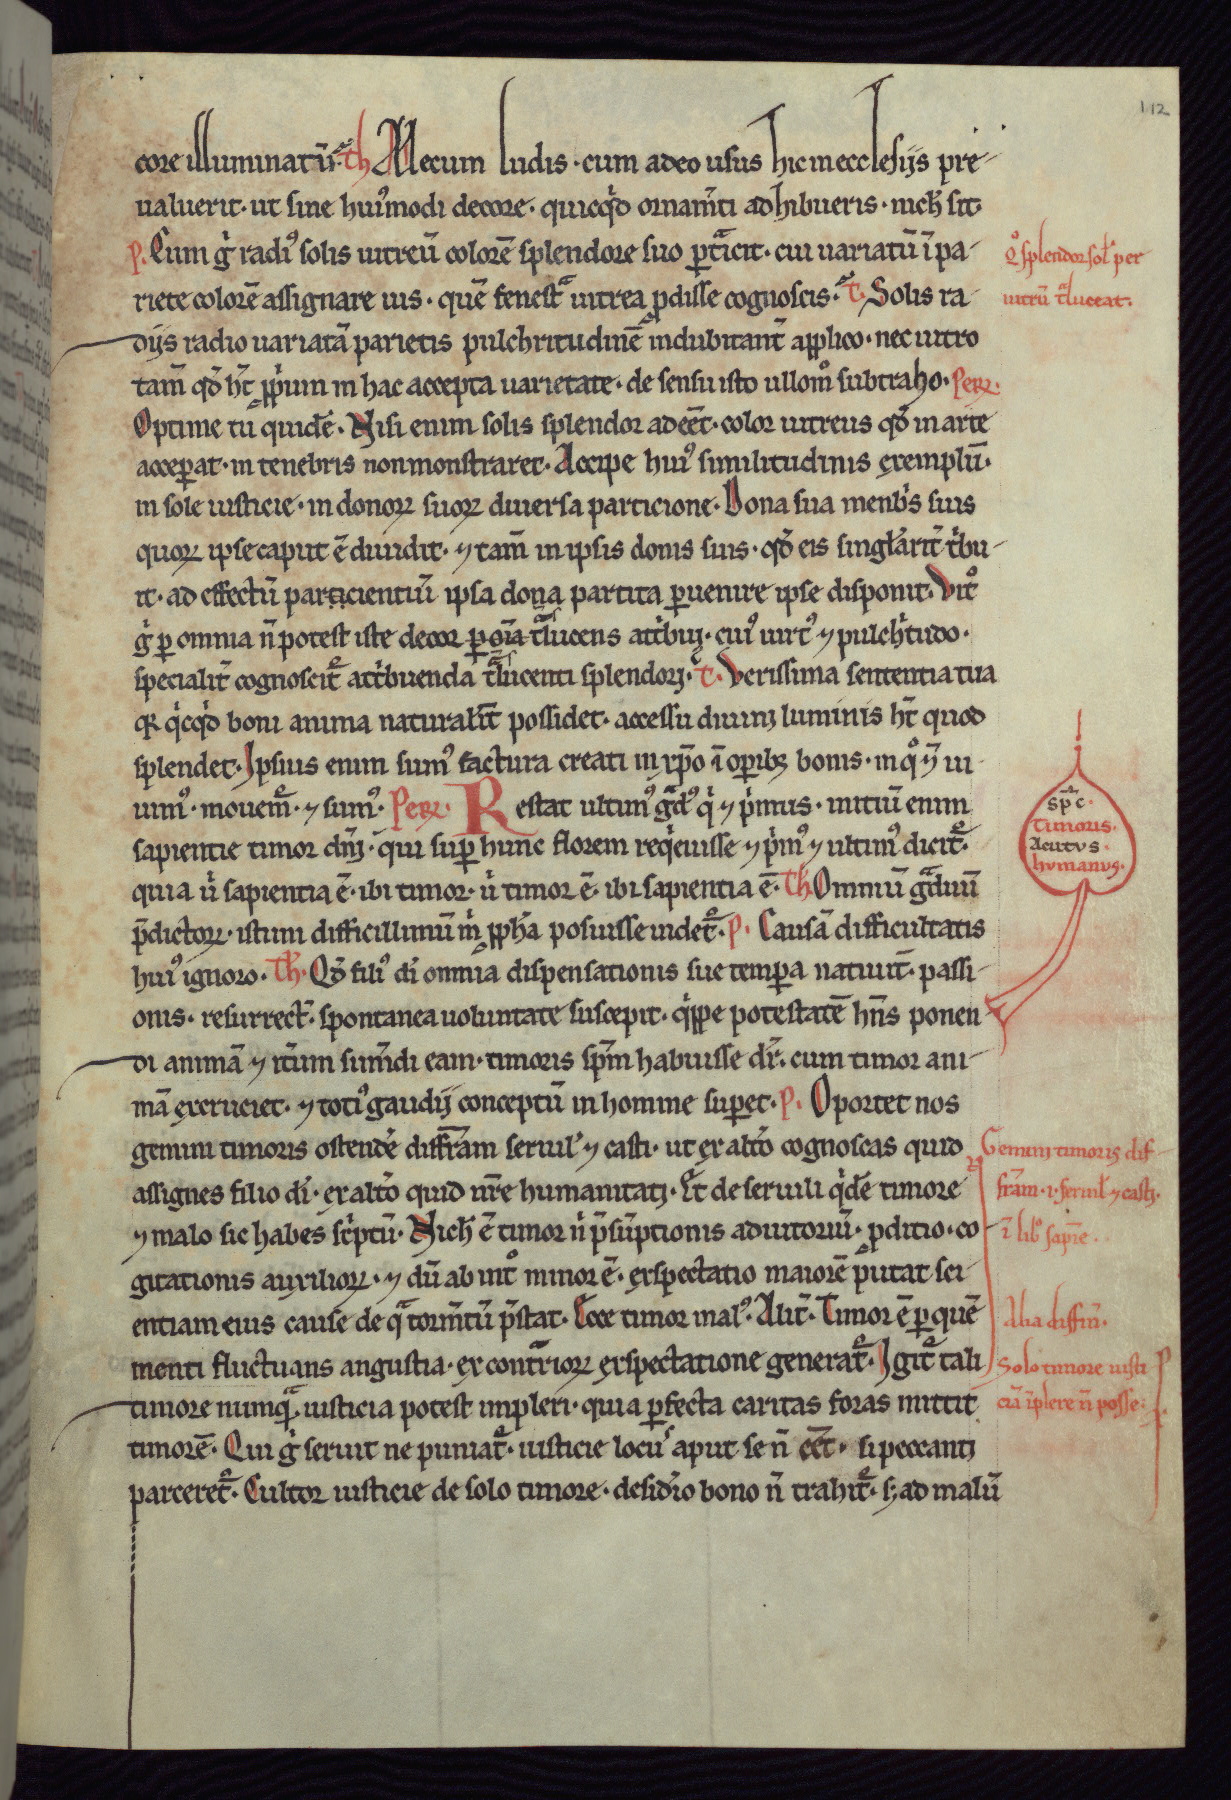 112
core illuminatū. Th Mecum ludis · cum adeo usus hic in ecclesijs pre-
ualuerit · ut sine hui9modi decore · quicqd ornamti adhibueris · nich sit
P. Cum g radi9 solis uitreū colorē splendore suo pticit · cui uariatū ī pa-
riete colorē assignare uis · quē fenest uitrea pdisse cognoscis. T. Solis ra-
dijs radio uariatā parietis pulchritudinē indubitant applico · nec uitro
tam qd ht ppium in hac accepta uarietate · de sensu isto ullom subtraho. Perꝝ.
Optime tu quidē. Nisi enim solis splendor adeet · color uitreus qd in arte
acceperat · in tenebris non monstraret. Accipe hui9 similitudinis exemplū.
in sole iusticie · in donoꝝ suoꝝ diuersa particione. Dona sua menbs suis
quoꝝ ipse caput ē diuidit · ⁊ tam in ipsis donis suis · qd eis singlarit tbu-
it · ad effectū participientiū ipsa dona partita puenire ipse disponit. Vit
g p omnia n potest iste decor p oia tlucens attbui · cui9 uirt9 ⁊ pulchtudo ·
specialit cognoscit attbuenda tlucenti splendori. T. Verissima sententia tua
qꝛ qcqd boni anima naturalit possidet · accessu diuini luminis ht quod
splendet. Ipsius enim sum9 factura creati in xpo ī opib; bonis · in q ⁊ ui-
uim9 · mouem ⁊ sum9. Perꝝ. Restat ultim9 gd9 q ⁊ pmus · initiū enim
sapientie timor dni · qui sup hunc florem reqeuisse ⁊ pm9 ⁊ ultim9 dicit.
quia u sapientia ē · ibi timor · u timor ē · ibi sapientia ē. Th Omniū gduū
pdictoꝝ · istum difficillimū m ppha posuisse uidet. P. Causā difficultatis
hui9 ignoro. Th. Qd fili9 di omnia dispensationis sue tempa natiuit · passi-
onis · resurrect · spontanea uoluntate suscepit · qppe potestatē hns ponen
di animā ⁊ itum sumdi eam · timoris spm habuisse dr · cum timor ani-
mā excruciet · ⁊ toti9 gaudij conceptū in homine supet. P. Oportet nos
gemini timoris ostende diffram seruil ⁊ casti · ut ex alto cognoscas quid
assignes filio di · ex alto quid nre humanitati. Et de seruili qde timore
⁊ malo sic habes sciptū. Nich ē timor n psūptionis adiutoriū · pditio · co-
gitationis auxilioꝝ · ⁊ dū ab int minor ē · expectatio maiorē putat sci-
entiam eius cause de q tormtū pstat. Ecce timor mal9. Alit. Timor ē p quē
menti fluctuans angustia · ex contrioꝝ expectatione generat. Igit tali
timore numq iusticia potest impleri · quia pfecta caritas foras mittit
timorē. Qui g seruit ne puniat · iusticie locus aput se n eet · si peccanti
parceret. Cultor iusticie de solo timore · desidio bono n trahit · s; ad malū
Qº splendor sol per
uitrū tluceat.
spc.
timoris.
Acutus
humanus.
Gemini timoris dif-
fram · i · seruil ⁊ casti.
ī lib sapie.
Alia diffin.
Solo timore iusti
ciā īplere n posse.